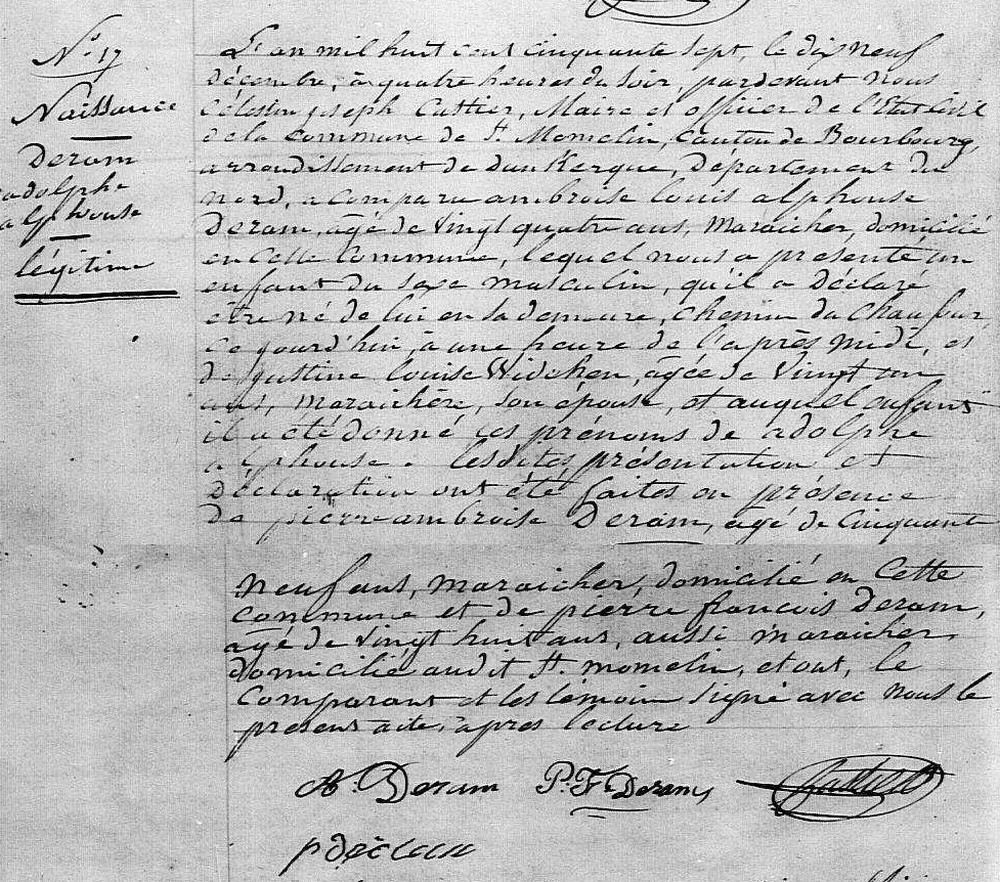 N° 17
Naissance
Deram
adolphe
alphouse
légitime
L'an mil huit cent cinquante sept, le dix neuf
décembre, à quatre heures du soir, pardevant nous
Célestin joseph Cattier, Maire et officier de l'Etat Civil
de la commune de St. Momelin, Canton de Bourbourg,
arrondissement de dunkerque, département du
nord, a comparu ambroise louis alphouse
Deram, âgé de Vingt quatre ans, Maraicher, domicilié
en Cette Commune, lequel nous a présenté un
enfant du sexe masculin, qu'il a déclaré
être né de lui en sa demeure, chemin du Chaufour,
ce jourd'hui, à une heure de l'après midi, et
de justine louise Widehen, âgée de Vingt un
ans, Maraichère, son épouse, et auquel enfant
il a été donné les prénoms de adolphe
alphouse. lesdites présentation et
déclaration ont été faites en présence
de pierre ambroise Deram, âgé de Cinquante
neuf ans, maraicher, domicilié en Cette
commune et de pierre francois Deram,
âgé de Vingt huit ans, aussi maraicher,
domicilié audit St. momelin, et out, le
Comparant et les témoin signé avec nous le
present acte, après lecture
A. Deram P. F. Deram